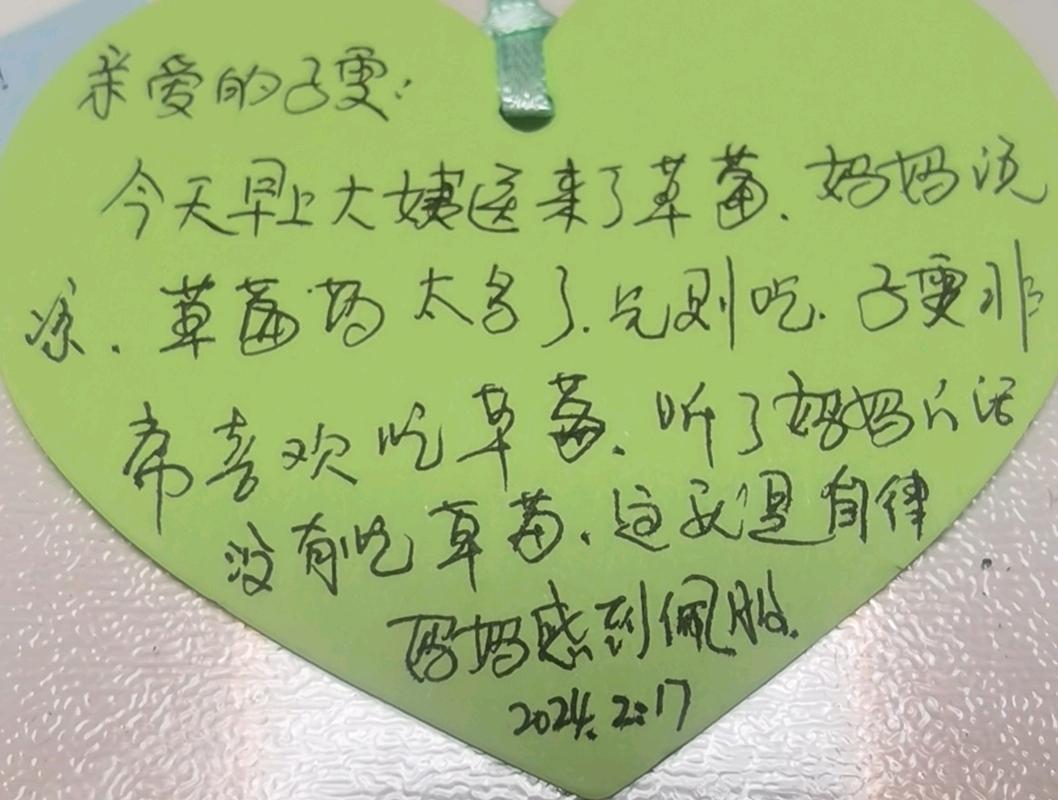 亲爱的子雯：
今天早上大姨送来了草莓，妈妈说
凉，草莓药太多了，先别吃，子雯非
常喜欢吃草莓，听了妈妈的话
没有吃草莓，这就是自律
妈妈感到佩服。
2024.2.17